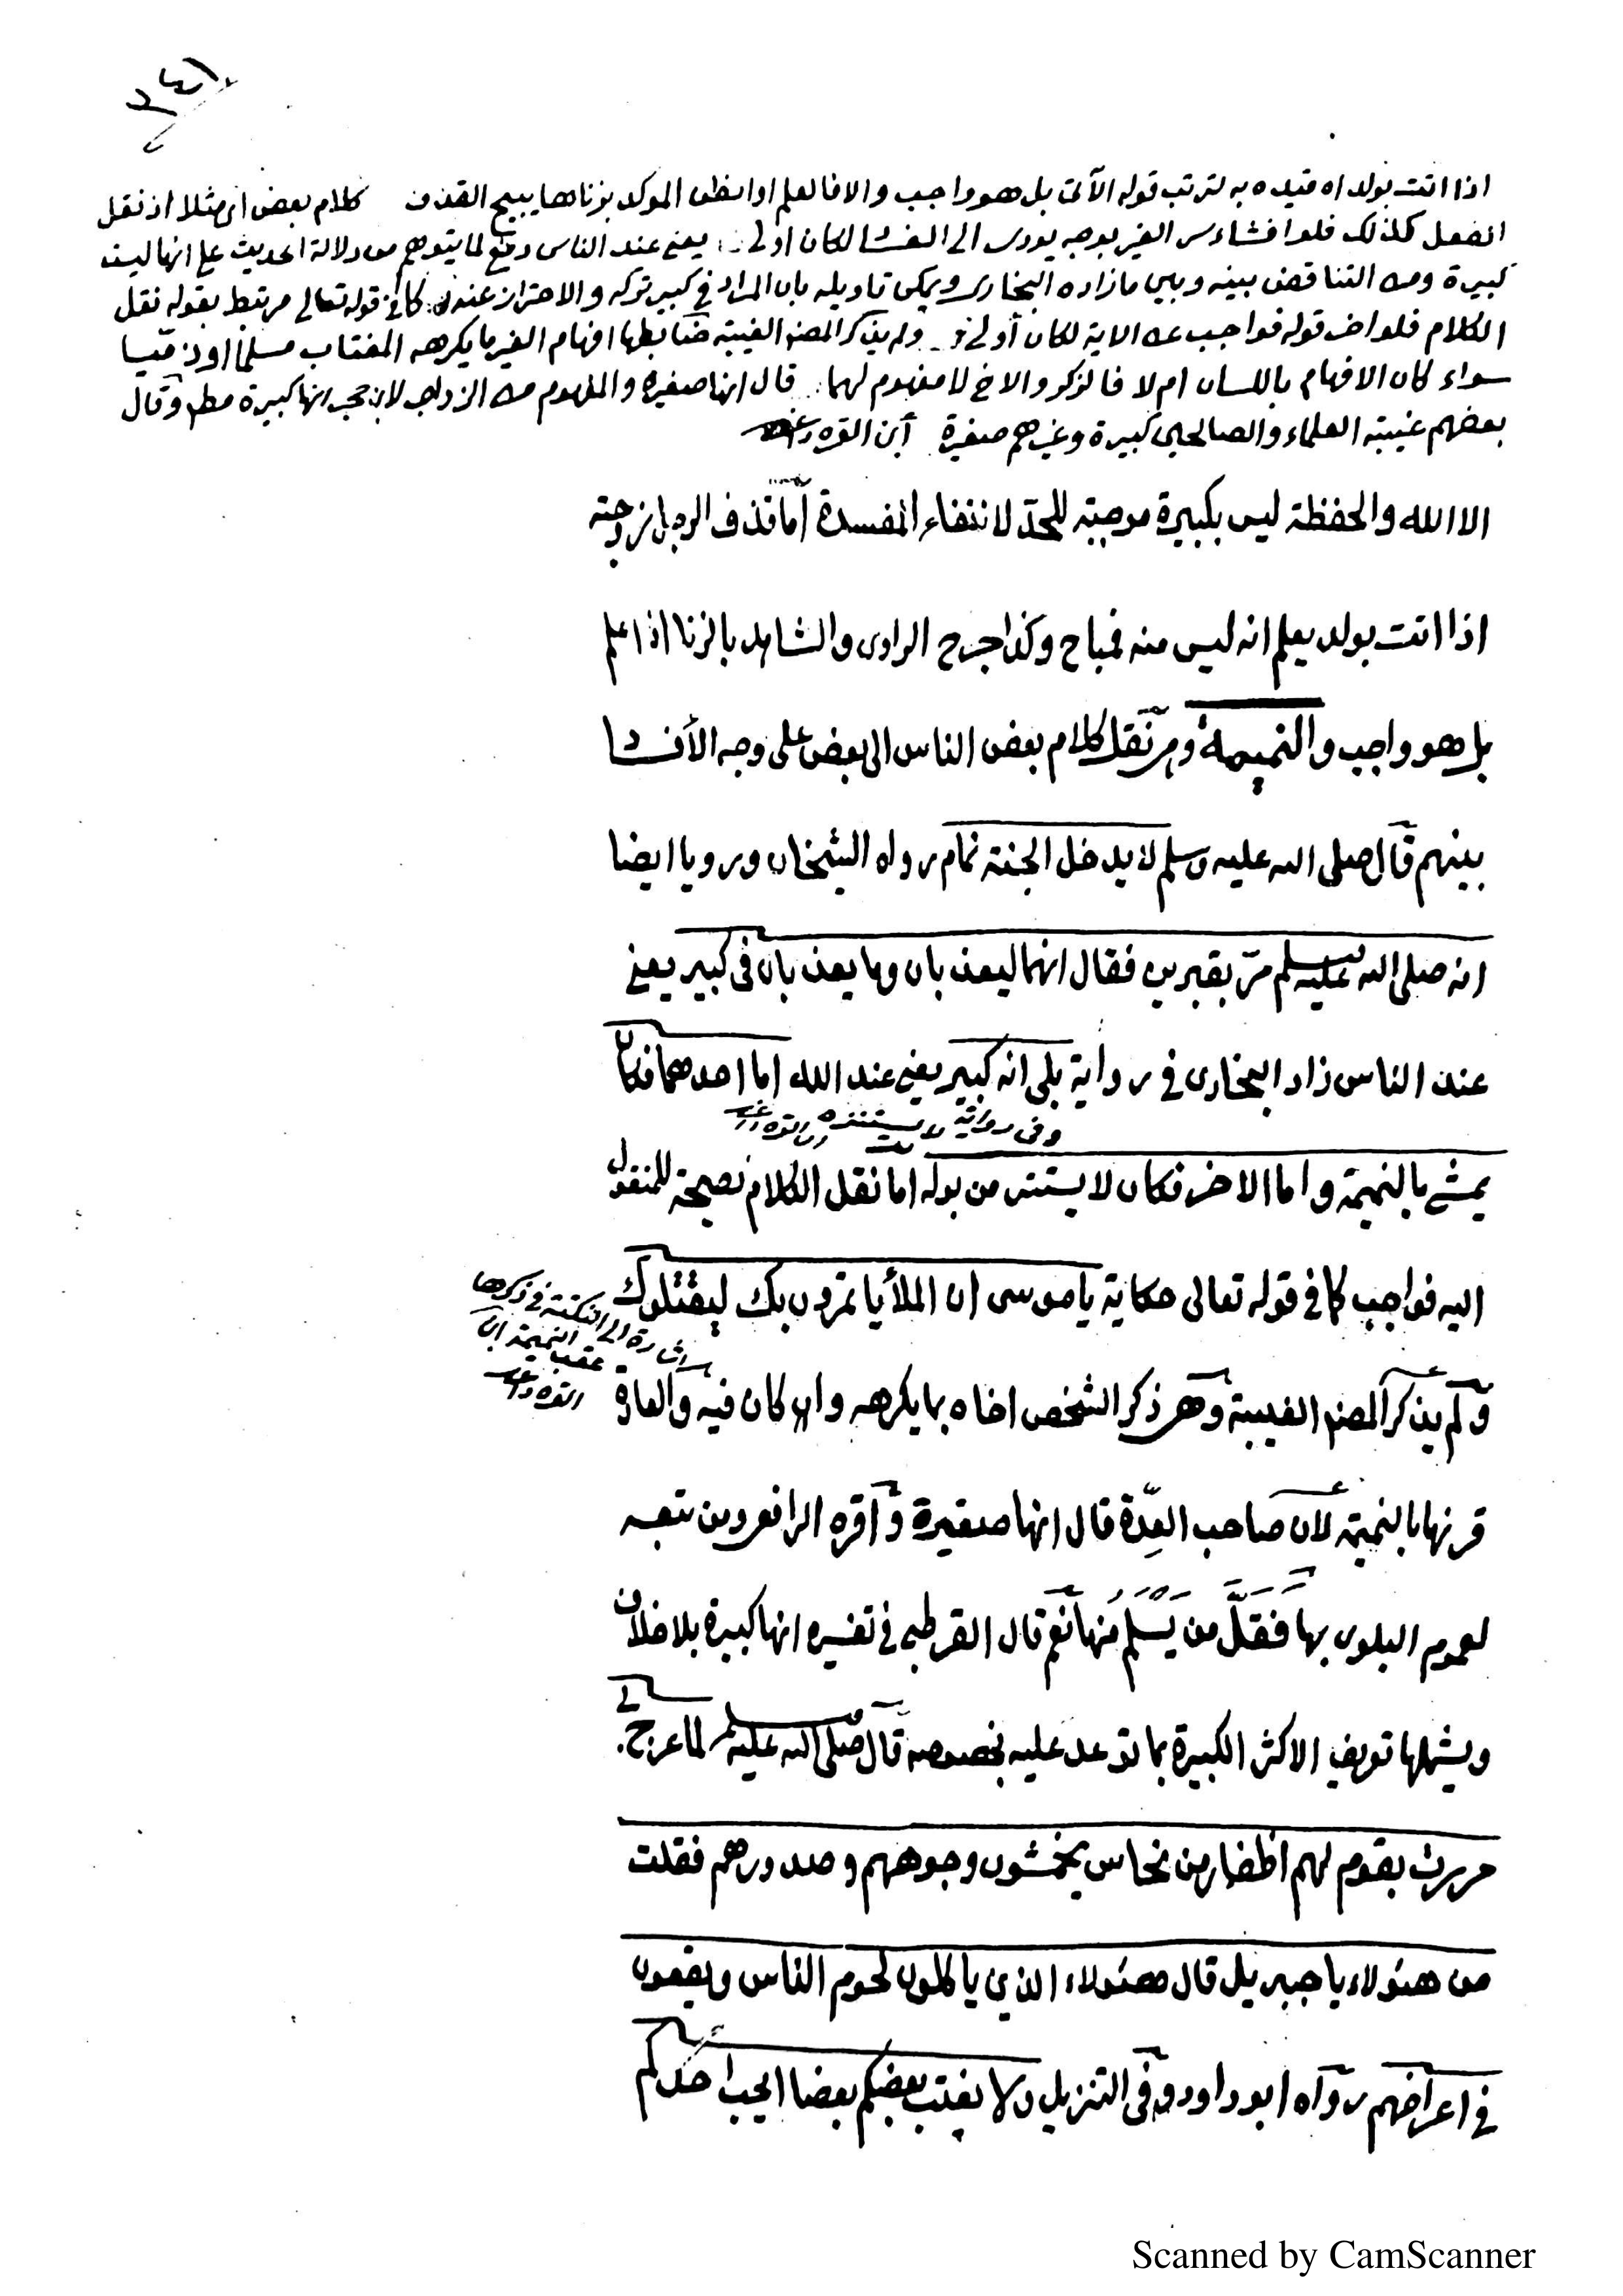 ٣٤١
اذا اتت بولد اه قيده به لترتب قوله الآتى بل هو واجب والا فالعلم او الظن الموكد بزناها يبيح القذف كلام بعض اى مثلا اذ نقل
الفعل كذلك فلو افشاء سر الغير بوجه يودى الى الفساد لكان اولى يعنى عند الناس دفع لما يتوهم من دلالة الحديث على انها ليست
كبيرة ومن التناقض بينه وبين ما زاده البخارى ويمكن تاويله بان المراد فى كبير تركه والاحتراز عنه كما فى قوله تعالى مرتبط بقوله نقل
الكلام فلو اخر قوله فواجب عن الاية لكان أولى ولم يذكر المصنف الغيبة ضابطها افهام الغير ما يكرهه المغتاب مسلما او ذميا
سواء كان الافهام باللسان ام لا فالذكر والاخ لا مفهوم لهما قال انها صغيرة والمفهوم من الزواجر لابن حجر انها كبيرة مطلقا وقال
بعضهم غيبة العلماء والصالحين كبيرة وغيرهم صغيرة ابن القره داغى
الا الله والحفظة ليس بكبيرة موجبة للحدّ لانتفاء المفسدة أما قذف الرجل زوجته
اذا اتت بولد يعلم انه ليس منه فمباح وكذا جرح الراوى والشاهد بالزنا اذا علم
بل هو واجب والنميمة وهى نقل كلام بعض الناس الى بعض على وجه الأفساد
بينهم قال صلى الله عليه وسلم لا يدخل الجنة نمام رواه الشيخان ورويا ايضا
انه صلى الله عليه وسلم مرّ بقبرين فقال انهما ليعذبان وما يعذبان فى كبير يعنى
عند الناس زاد البخارى فى رواية بلى انه كبير يعنى عند الله اما احدهما فكان
وفى رواية لا يستنزه ابن القره داغى
يمشى بالنميمة واما الاخر فكان لا يستتر من بوله اما نقل الكلام نصيحة للمنقول
اليه فواجب كما فى قوله تعالى حكاية يا موسى ان الملأ يأتمرون بك ليقتلوك
اشارة الى النكتة فى ذكرها
عقب النميمة ابن
القره داغى
ولم يذكر المصنف الغيبة وهى ذكر الشخص اخاه بما يكرهه وان كان فيه والعادة
قرنها بالنميمة لان صاحب العِدّة قال انها صغيرة واقره الرافعى ومن تبعه
لعموم البلوى بها فَقَلَّ من يَسْلَمُ منها نعم قال القرطبى فى تفسيره انها كبيرة بلا خلاف
ويشملها تعريف الاكثر الكبيرة بما توعد عليه بخصوصه قال صلى الله عليه وسلم لما عرج بى
مررت بقوم لهم اظفار من نحاس يخمشون وجوههم وصدورهم فقلت
من هئولاء يا جبريل قال هئولاء الذين ياكلون لحوم الناس ويقعون
فى اعراضهم رواه ابو داود وفى التنزيل ولا يغتب بعضكم بعضا ايحب احدكم
Scanned by CamScanner